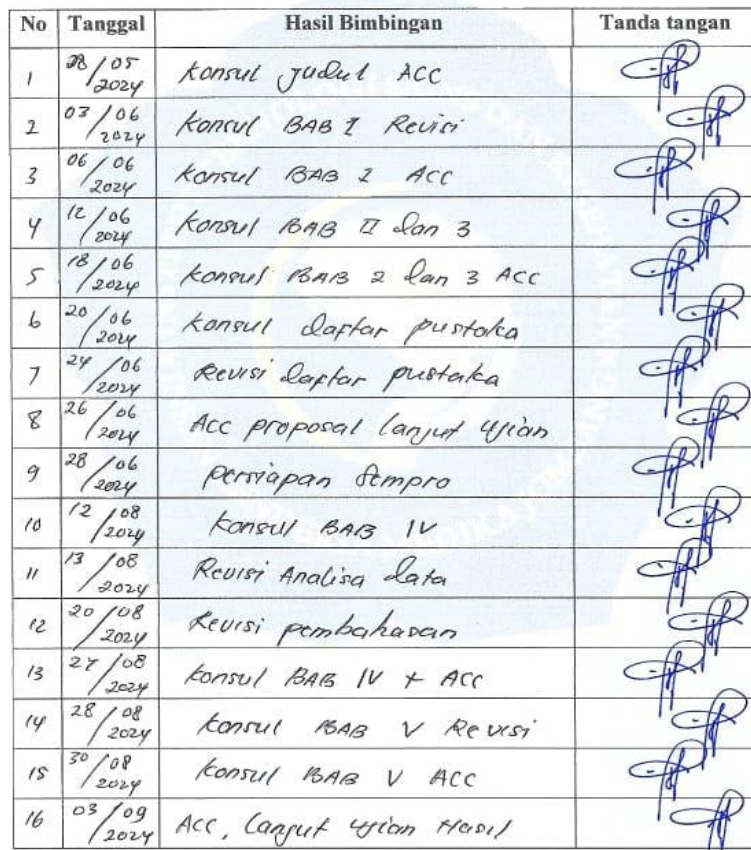 No Tanggal Hasil Bimbingan Tanda tangan
1 28/05 2024 Konsul Judul ACC
2 03/06 2024 Konsul BAB I Revisi
3 06/06 2024 Konsul BAB 1 ACC
4 12/06 2024 Konsul BAB II dan 3
5 18/06 2024 Konsul BAB 2 dan 3 ACC
6 20/06 2024 Konsul daftar pustaka
7 24/06 2024 Revisi daftar pustaka
8 26/06 2024 Acc proposal lanjut ujian
9 28/06 2024 Persiapan Sempro
10 12/08 2024 Konsul BAB IV
11 13/08 2024 Revisi Analisa data
12 20/08 2024 Revisi pembahasan
13 27/08 2024 Konsul BAB IV + ACC
14 28/08 2024 Konsul BAB V Revisi
15 30/08 2024 Konsul BAB V ACC
16 03/09 2024 ACC, Lanjut Ujian Hasil